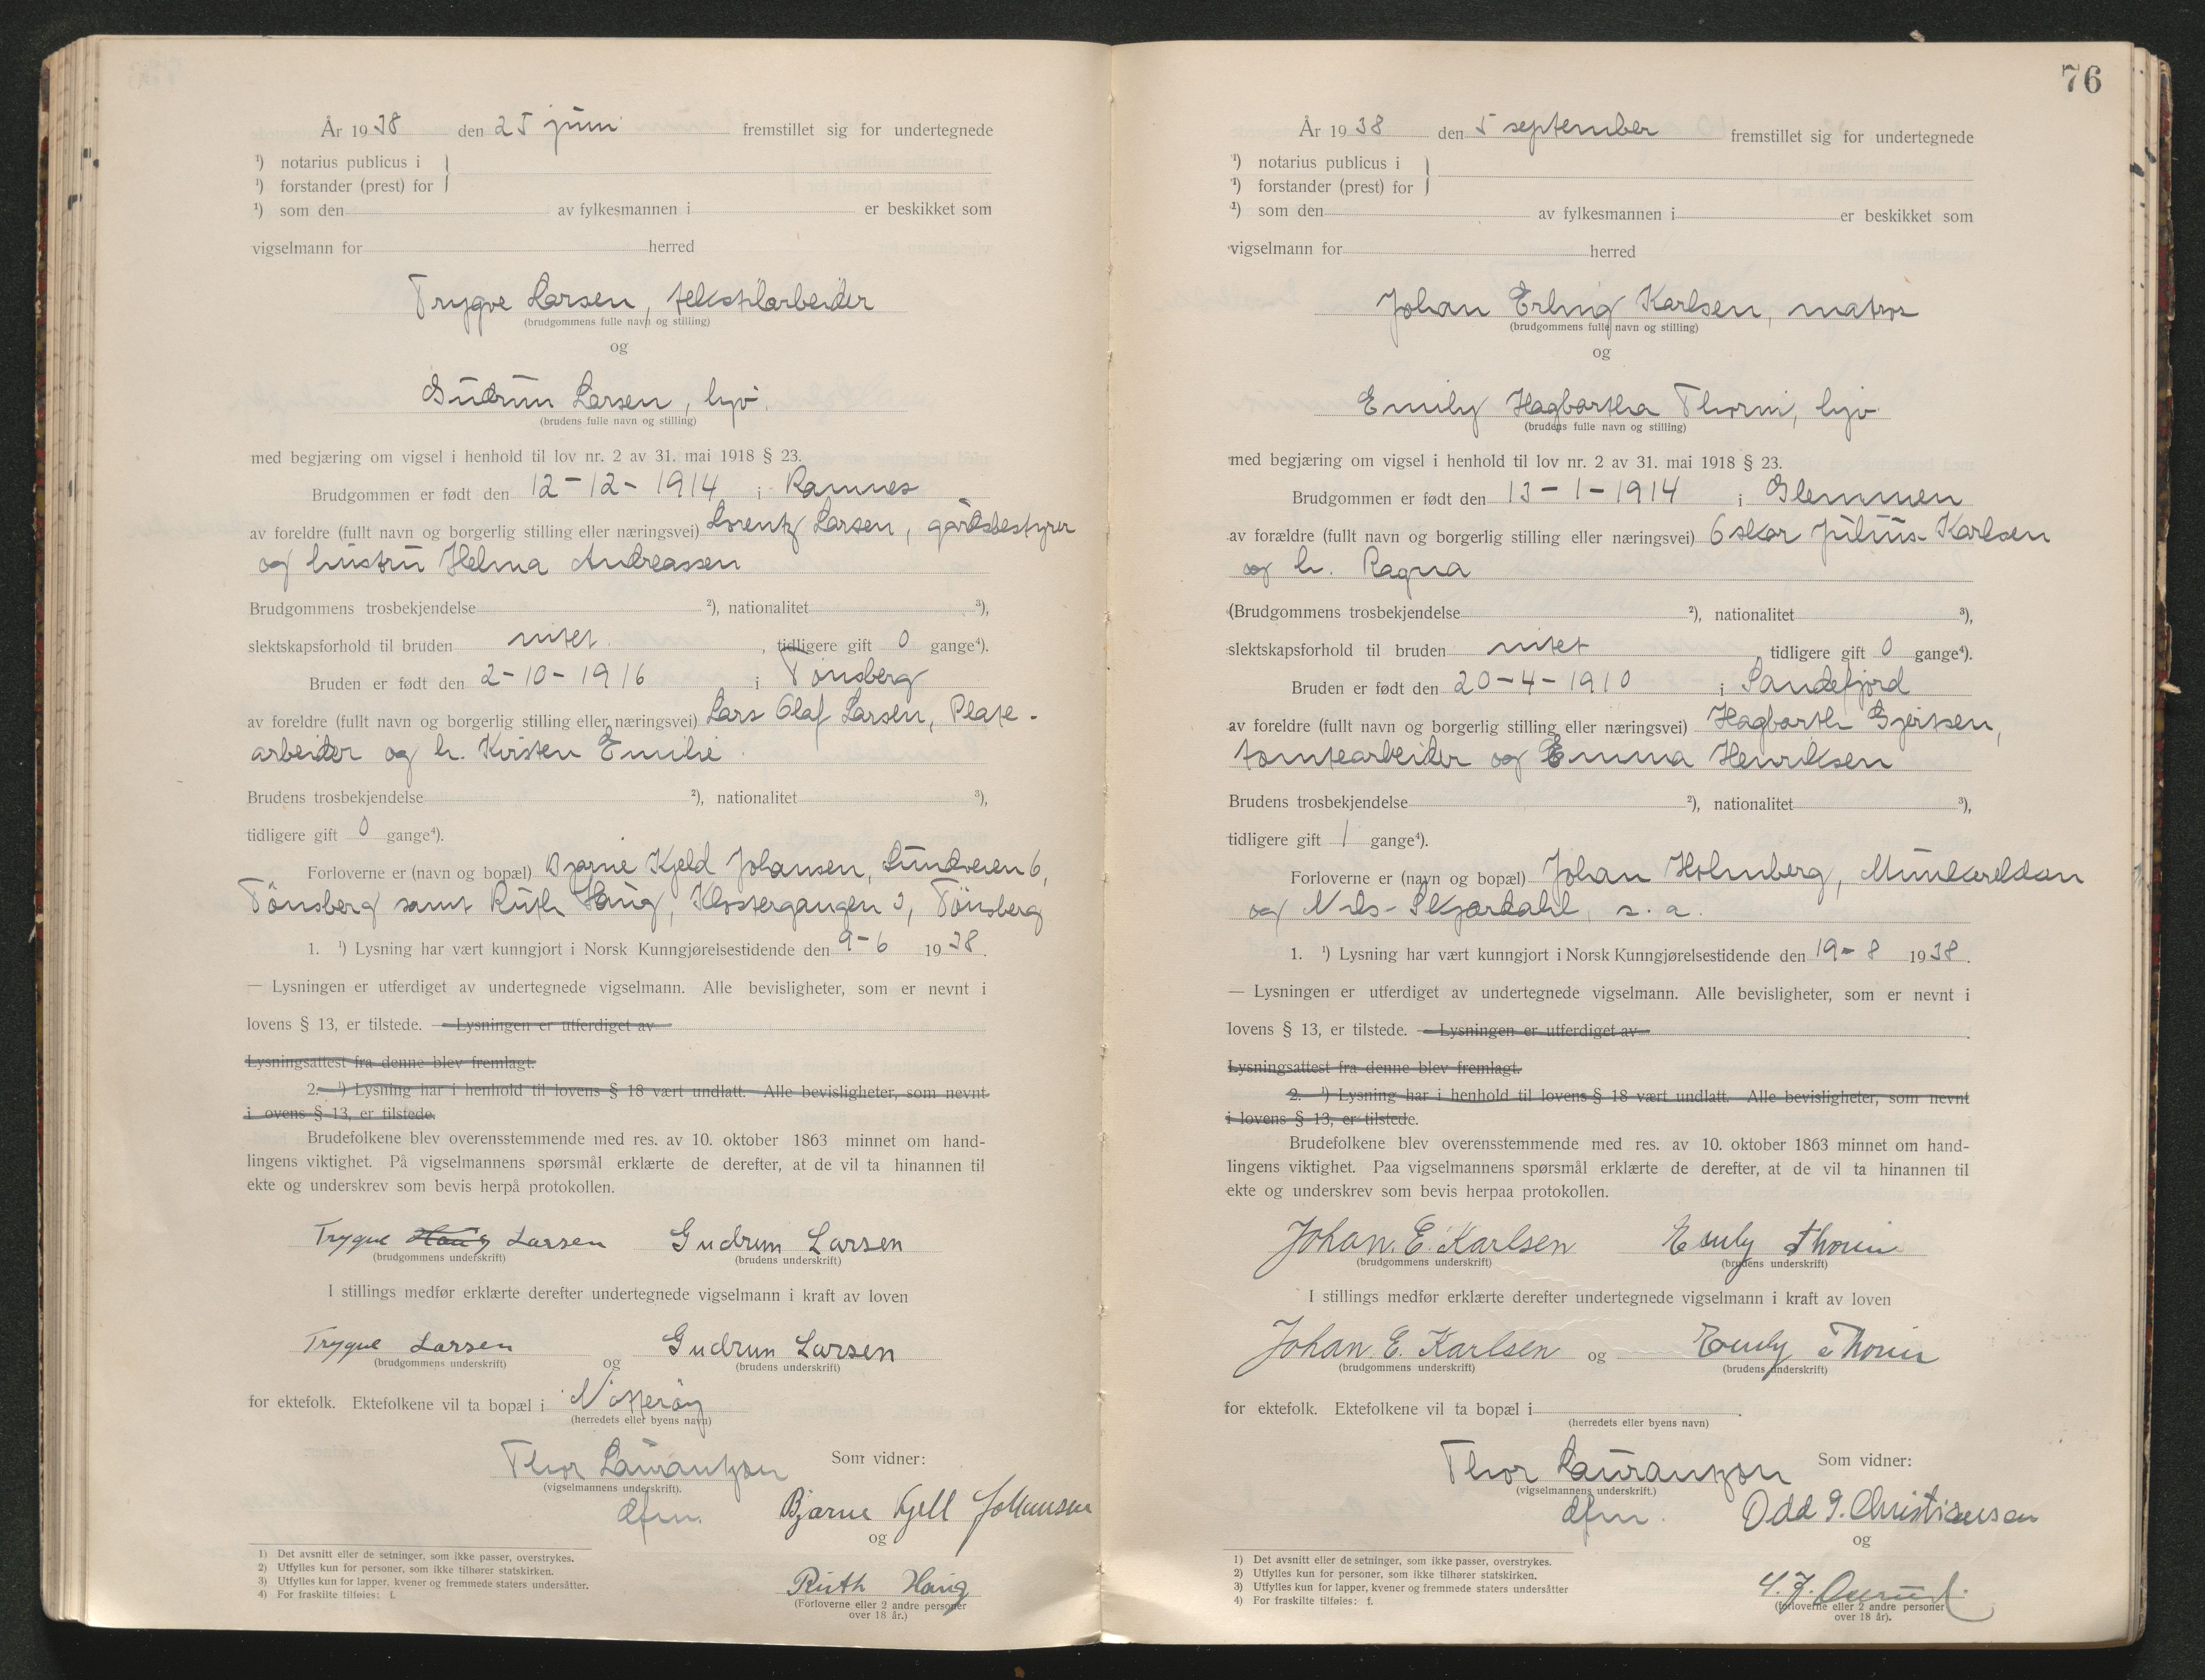 År 1938 den 25 juni fremstillet sig for undertegnede
¹) notarius publicus i
¹) forstander (prest) for
¹) som den av fylkesmannen i er beskikket som
vigselmann for herred
Trygve Larsen, tekstilarbeider
(brudgommens fulle navn og stilling)
og
Gudrun Larsen, hjv.
(brudens fulle navn og stilling)
med begjæring om vigsel i henhold til lov nr. 2 av 31. mai 1918 § 23.
Brudgommen er født den 12-12-1914 i Ramnes
av foreldre (fullt navn og borgerlig stilling eller næringsvei) Lorentz Larsen, gårdsbestyrer
og hustru Helma Andreassen
Brudgommens trosbekjendelse ²), nationalitet ³),
slektskapsforhold til bruden intet. , tidligere gift 0 gange⁴).
Bruden er født den 2-10-1916 i Tönsberg
av foreldre (fullt navn og borgerlig stilling eller næringsvei) Lars Olaf Larsen, Plate-
arbeider og h. Kirsten Emilie.
Brudens trosbekjendelse ²), nationalitet ³),
tidligere gift 0 gange⁴).
Forloverne er (navn og bopæl) Bjarne Kjeld Johansen, Lundveien 6,
Tönsberg samt Ruth Haug, Klostergangen 3, Tönsberg
1. ¹) Lysning har vært kunngjort i Norsk Kunngjørelsestidende den 9-6 1938.
— Lysningen er utferdiget av undertegnede vigselmann. Alle bevisligheter, som er nevnt i
lovens § 13, er tilstede. — Lysningen er utferdiget av
Lysningsattest fra denne blev fremlagt.
2. ¹) Lysning har i henhold til lovens § 18 vært undlatt. Alle bevisligheter, som nevnt
i ovens § 13, er tilstede.
Brudefolkene blev overensstemmende med res. av 10. oktober 1863 minnet om hand-
lingens viktighet. På vigselmannens spørsmål erklærte de derefter, at de vil ta hinannen til
ekte og underskrev som bevis herpå protokollen.
Trygve Haug Larsen Gudrun Larsen
(brudgommens underskrift) (brudens underskrift)
I stillings medfør erklærte derefter undertegnede vigselmann i kraft av loven
Trygve Larsen og Gudrun Larsen
(brudgommens underskrift) (brudens underskrift)
for ektefolk. Ektefolkene vil ta bopæl i Nötteröy
(herredets eller byens navn)
Thor Laurantzon Som vidner:
(vigselmannens underskrift).
dfm. Bjarne Kjell Johansen
og
Ruth Haug
(Forloverne eller 2 andre personer
over 18 år.)
1) Det avsnitt eller de setninger, som ikke passer, overstrykes.
2) Utfylles kun for personer, som ikke tilhører statskirken.
3) Utfylles kun for lapper, kvener og fremmede staters undersåtter.
4) For fraskilte tilføies: f.
76
År 1938 den 5 september fremstillet sig for undertegnede
¹) notarius publicus i
¹) forstander (prest) for
¹) som den av fylkesmannen i er beskikket som
vigselmann for herred
Johan Erling Karlsen, matros
(brudgommens fulle navn og stilling)
og
Emily Hagbartha Thorin, hjv.
(brudens fulle navn og stilling)
med begjæring om vigsel i henhold til lov nr. 2 av 31. mai 1918 § 23.
Brudgommen er født den 13-1-1914 i Glemmen
av forældre (fullt navn og borgerlig stilling eller næringsvei) Oskar Julius Karlsen
og h. Ragna
(Brudgommens trosbekjendelse ²), nationalitet ³),
slektskapsforhold til bruden intet , tidligere gift 0 gange⁴).
Bruden er født den 20-4-1910 i Sandefjord
av foreldre (fullt navn og borgerlig stilling eller næringsvei) Hagbarth Gjertsen,
tomtearbeider og Emma Henriksen
Brudens trosbekjendelse ²), nationalitet ³),
tidligere gift 1 gange⁴).
Forloverne er (navn og bopæl) Johan Holmberg,
og Nils Skjærdahl, s. a.
1. ¹) Lysning har vært kunngjort i Norsk Kunngjørelsestidende den 19-8 1938.
— Lysningen er utferdiget av undertegnede vigselmann. Alle bevisligheter, som er nevnt i
lovens § 13, er tilstede. — Lysningen er utferdiget av .
Lysningsattest fra denne blev fremlagt.
2. ¹) Lysning har i henhold til lovens § 18 vært undlatt. Alle bevisligheter, som nevnt
i lovens § 13, er tilstede.
Brudefolkene blev overensstemmende med res. av 10. oktober 1863 minnet om hand-
lingens viktighet. Paa vigselmannens spørsmål erklærte de derefter, at de vil ta hinannen til
ekte og underskrev som bevis herpaa protokollen.
Johan. E. Karlsen Emily Thorin
(brudgommens underskrift) (brudens underskrift)
I stillings medfør erklærte derefter undertegnede vigselmann i kraft av loven
Johan. E. Karlsen og Emily Thorin
(brudgommens underskrift) (brudens underskrift)
for ektefolk. Ektefolkene vil ta bopæl i .
(herredets eller byens navn)
Thor Laurantzon Som vidner:
(vigselmannens underskrift.)
dfm. Odd G. Christiansen
og
(forloverne eller 2 andre personer
over 18 år).
1) Det avsnitt eller de setninger, som ikke passer, overstrykes.
2) Utfylles kun for personer, som ikke tilhører statskirken.
3) Utfylles kun for lapper, kvener og fremmede staters undersåtter
4) For fraskilte tilføies: f.